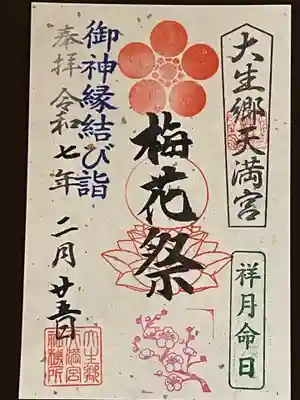 大生郷天満宮
祥月命日
梅花祭
御神縁結び詣
奉拝 令和七年
二月廿五日
大生郷
天満宮
社務所